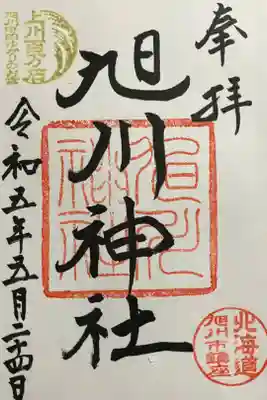 奉拝
旭川神社
旭川神社
令和五年五月二十四日
上川百万石
北海道
旭川市鎮座